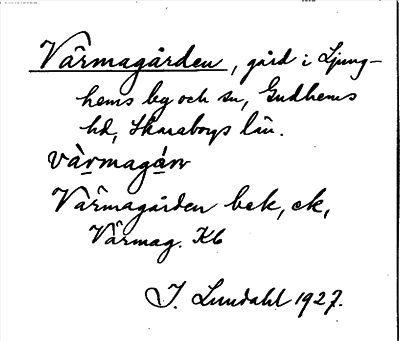 Värmagården, gård i Ljung-
hems by och sn, Gudhems
hd, Skaraborgs län.
Värmagården bek, ek,
Värmag. Kb
I. Lundahl 1927.